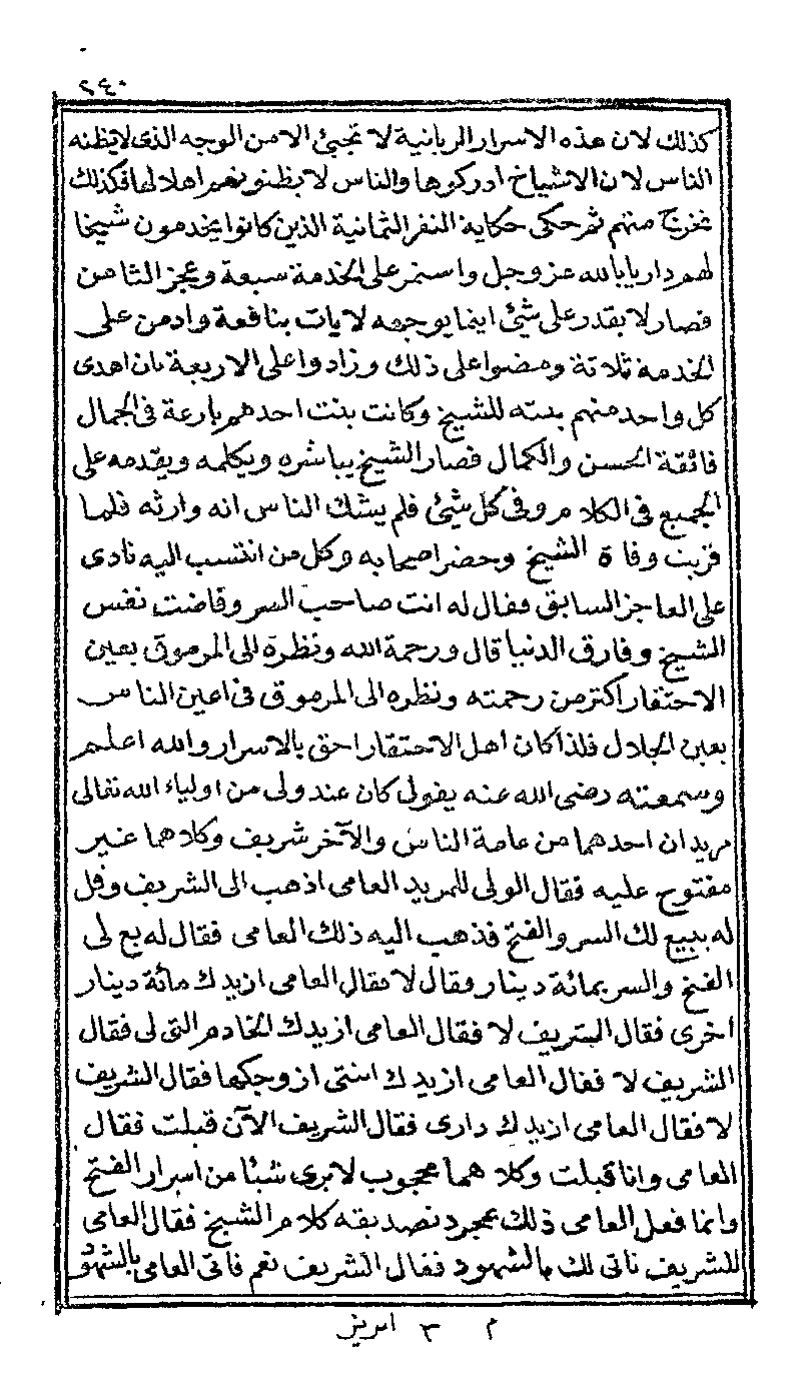 ٢٤٠
كذلك لان هذه الاسرار الربانية لا تجيئ الا من الوجه الذى لا يظنه
الناس لان الاشياخ ادركوها والناس لا يظنونهم اهلا لها فكذلك
تخرج منهم ثم حكى حكاية النفر الثمانية الذين كانوا يخدمون شيخا
لهم داريا بالله عز وجل واستمر على الخدمة سبعة وعجز الثامن
فصار لا يقدر على شيئ اينما يوجهه لا يات بنافعة وادمن على
الخدمة ثلاثة ومضوا على ذلك وزادوا على الاربعة بان اهدى
كل واحد منهم بنته للشيخ وكانت بنت احدهم بارعة فى الجمال
فائقة الحسن والكمال فصار الشيخ يباشره ويكلمه ويقدمه على
الجميع فى الكلام وفى كل شيئ فلم يشك الناس انه وارثه فلما
قربت وفاة الشيخ وحضر اصحابه وكل من انتسب اليه نادى
على العاجز السابق فقال له انت صاحب السر وفاضت نفس
الشيخ وفارق الدنيا قال ورحمة الله ونظره الى المرموق بعين
الاحتقار اكثر من رحمته ونظره الى المرموق فى اعين الناس
بعين الجلال فلذا كان اهل الاحتقار احق بالاسرار والله اعلم
وسمعته رضى الله عنه يقول كان عند ولى من اولياء الله تعالى
مريدان احدهما من عامة الناس والآخر شريف وكلاهما غير
مفتوح عليه فقال الولى للمريد العامى اذهب الى الشريف وقل
له يبيع لك السر والفتح فذهب اليه ذلك العامى فقال له بع لى
الفتح والسر بمائة دينار فقال لا فقال العامى ازيدك مائة دينار
اخرى فقال الشريف لا فقال العامى ازيدك الخادم التى لى فقال
الشريف لا فقال العامى ازيدك ابنتى ازوجكها فقال الشريف
لا فقال العامى ازيدك دارى فقال الشريف الآن قبلت فقال
العامى وانا قبلت وكلاهما محجوب لا يرى شيئا من اسرار الفتح
وانما فعل العامى ذلك بمجرد تصديقه كلام الشيخ فقال العامى
للشريف ناتى لك بالشهود فقال الشريف نعم فاتى العامى بالشهود
م ٣ ابريز